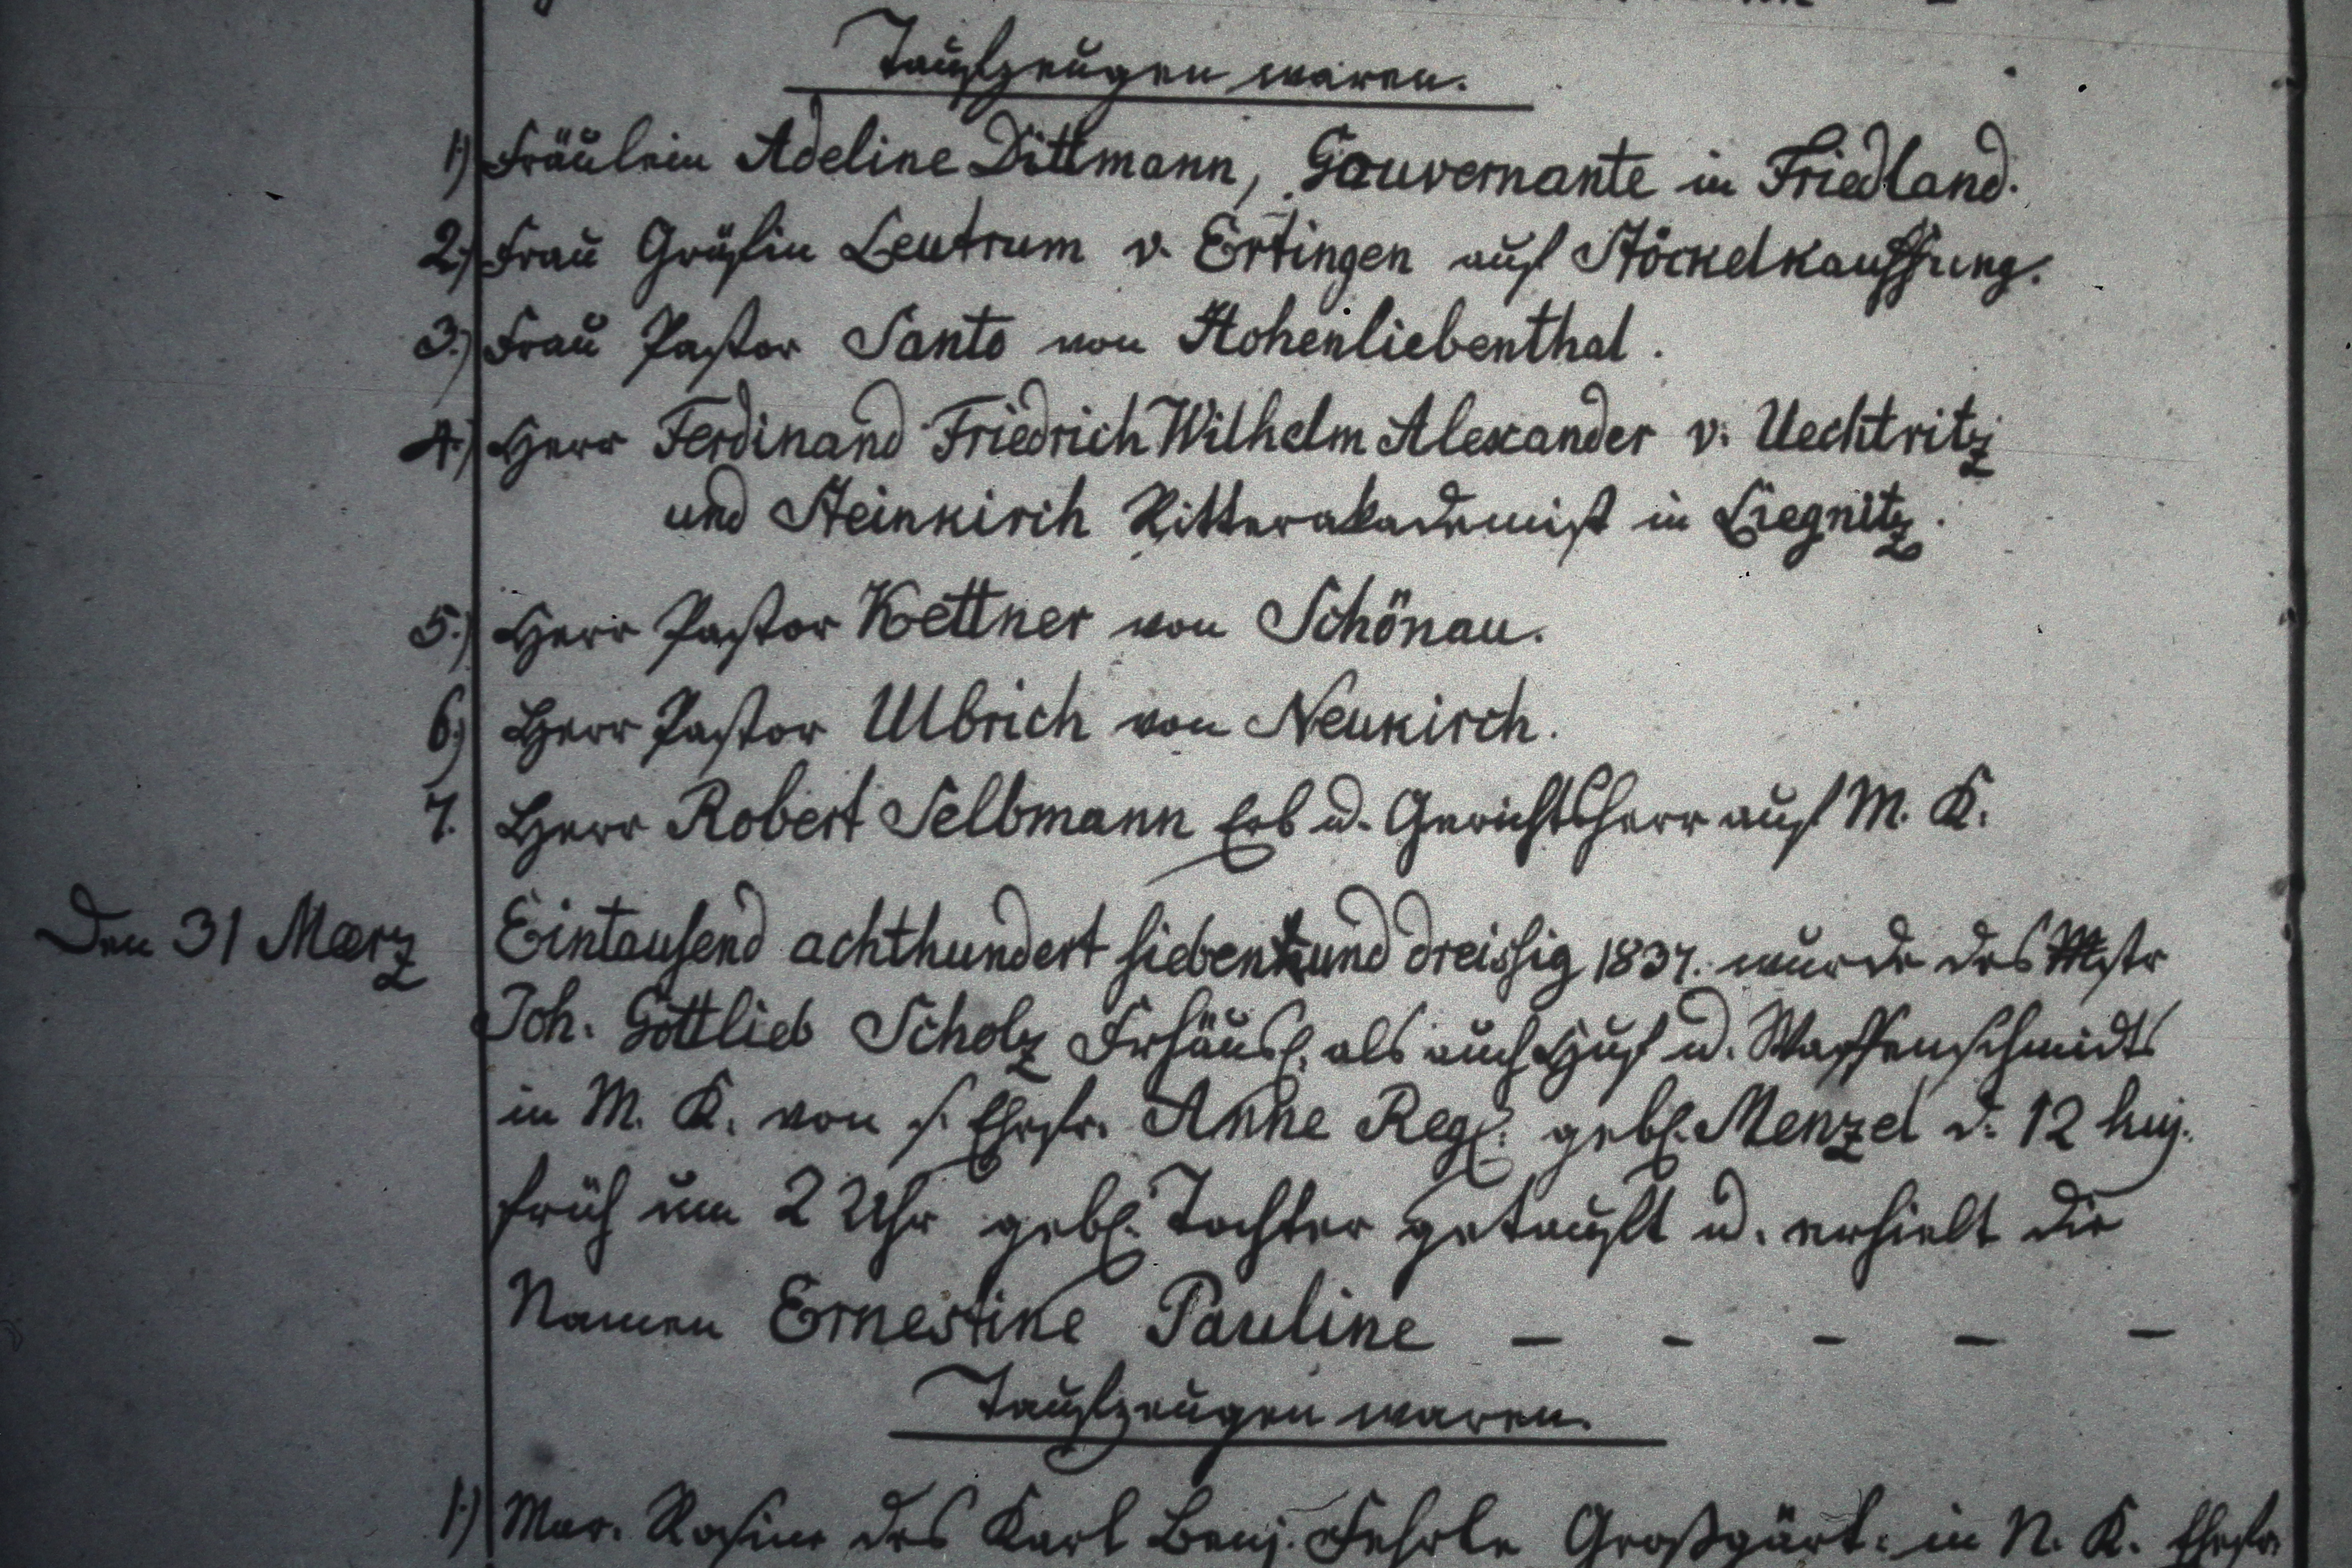 Taufzeugen waren.
1) Fräulein Adeline Dittmann, Gouvernante in Friedland.
2.) Frau Gräfin Leutrum v. Ertingen auf Stöckelkauffung.
3.) Frau Pastor Santo von Hohenliebenthal.
4.) Herr Ferdinand Friedrich Wilhelm Alexander v. Uechtritz
und Steinkirch Ritterakademist in Liegnitz.
5.) Herr Pastor Kettner von Schönau.
6.) Herr Pastor Ulbrich von Neukirch.
7. Herr Robert Selbmann Erb u. Gerichtsherr auf M. K.
Den 31 Maerz Eintausend achthundert sieben und dreissig 1837. wurde des Mstr
Joh. Gottlieb Scholz Frhäusl. als auch Huf u. Waffenschmidts
in M. K. von s. Ehefr. Anne Reg. geb. Menzel d. 12 huj.
früh um 2 Uhr geb. Tochter getauft u. erhielt die
Namen Ernestine Pauline – – – – –
Taufzeugen waren.
1.) Mar. Rosine des Karl Benj. Großgärt. in N. K. Ehefr.